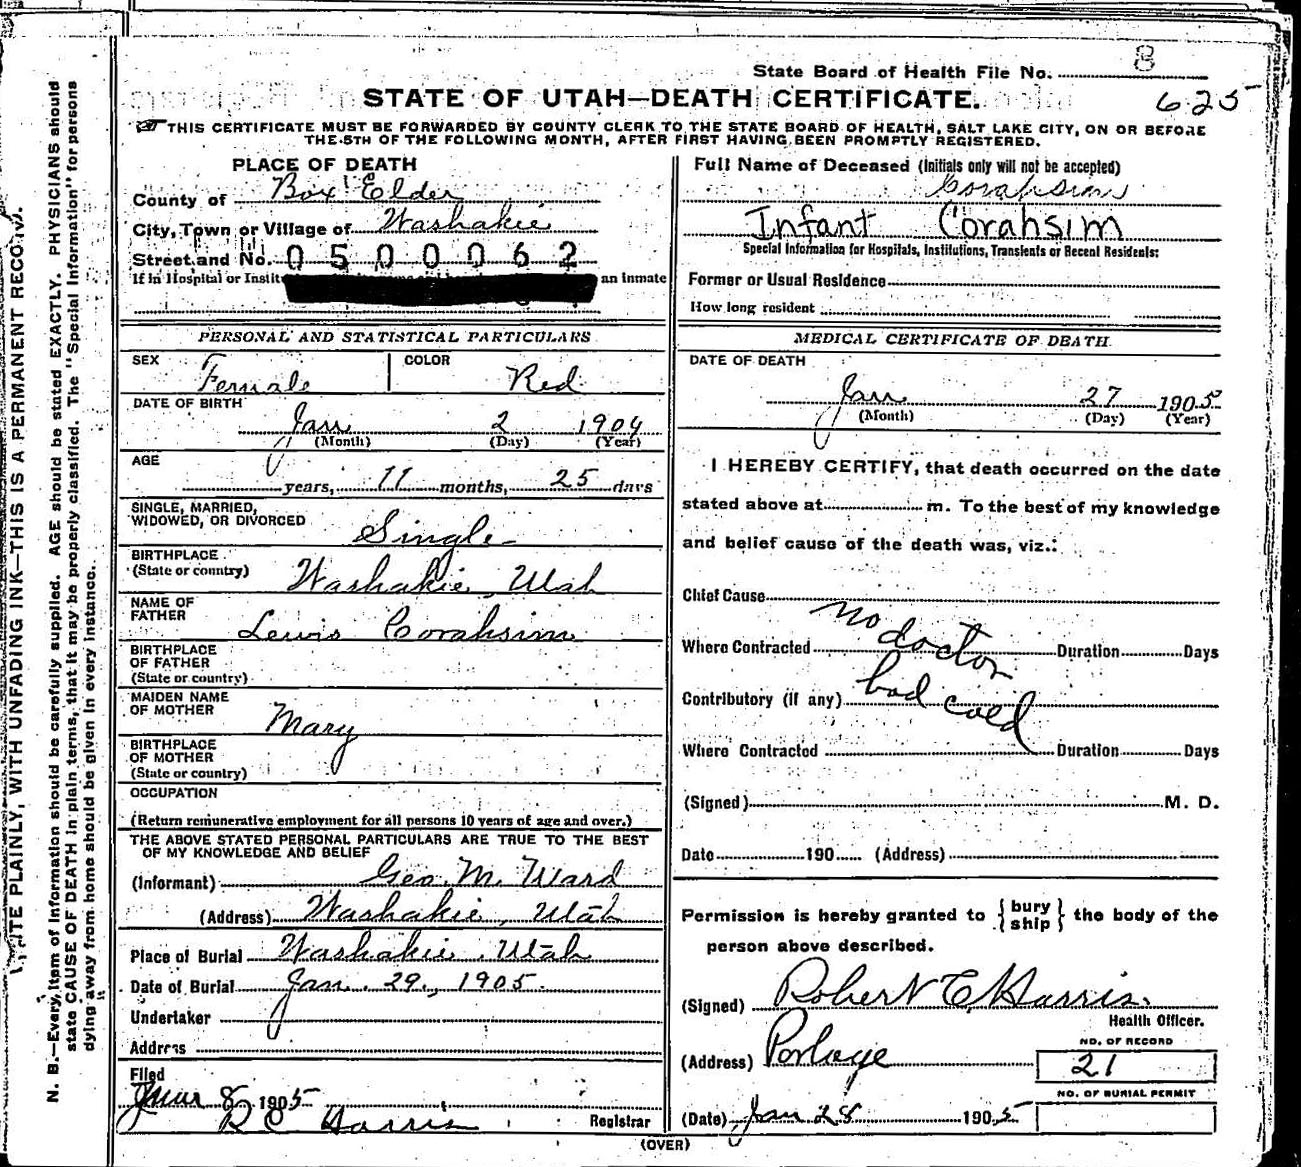 State Board of Health File No. 8
STATE OF UTAH—DEATH CERTIFICATE. 625
THIS CERTIFICATE MUST BE FORWARDED BY COUNTY CLERK TO THE STATE BOARD OF HEALTH, SALT LAKE CITY, ON OR BEFORE
THE 5TH OF THE FOLLOWING MONTH, AFTER FIRST HAVING BEEN PROMPTLY REGISTERED.
PLACE OF DEATH
County of Box Elder
City, Town or Village of Washakie
Street and No. 0500062
If in Hospital or Instit an inmate
PERSONAL AND STATISTICAL PARTICULARS
SEX Female COLOR Red
DATE OF BIRTH
Jan 2 1904
(Month) (Day) (Year)
AGE
years, 11 months, 25 days
SINGLE, MARRIED,
WIDOWED, OR DIVORCED Single
BIRTHPLACE
(State or country) Washakie, Utah
NAME OF
FATHER Lewis Corahsim
BIRTHPLACE
OF FATHER
(State or country)
MAIDEN NAME
OF MOTHER Mary
BIRTHPLACE
OF MOTHER
(State or country)
OCCUPATION
(Return remunerative employment for all persons 10 years of age and over.)
THE ABOVE STATED PERSONAL PARTICULARS ARE TRUE TO THE BEST
OF MY KNOWLEDGE AND BELIEF
(Informant) Geo. M. Ward
(Address) Washakie, Utah
Place of Burial Washakie, Utah
Date of Burial Jan. 29., 1905.
Undertaker
Address
Filed
8 1905
R C Harris Registrar
Full Name of Deceased (Initials only will not be accepted)
Corahsim
Infant Corahsim
Special Information for Hospitals, Institutions, Transients or Recent Residents:
Former or Usual Residence
How long resident
MEDICAL CERTIFICATE OF DEATH
DATE OF DEATH
Jan 27 1905
(Month) (Day) (Year)
I HEREBY CERTIFY, that death occurred on the date
stated above at m. To the best of my knowledge
and belief cause of the death was, viz.:
Chief Cause
no doctor
Where Contracted Duration Days
Contributory (if any) bad cold
Where Contracted Duration Days
(Signed) M. D.
Date 190 (Address)
Permission is hereby granted to { bury
ship } the body of the
person above described.
(Signed) Robert C Harris.
Health Officer.
(Address) Portage
NO. OF RECORD
21
NO. OF BURIAL PERMIT
(Date) Jan 28 1905
(OVER)
WRITE PLAINLY, WITH UNFADING INK—THIS IS A PERMANENT RECORD.
N. B.—Every item of information should be carefully supplied. AGE should be stated EXACTLY. PHYSICIANS should
state CAUSE OF DEATH in plain terms, that it may be properly classified. The "Special Information" for persons
dying away from home should be given in every instance.